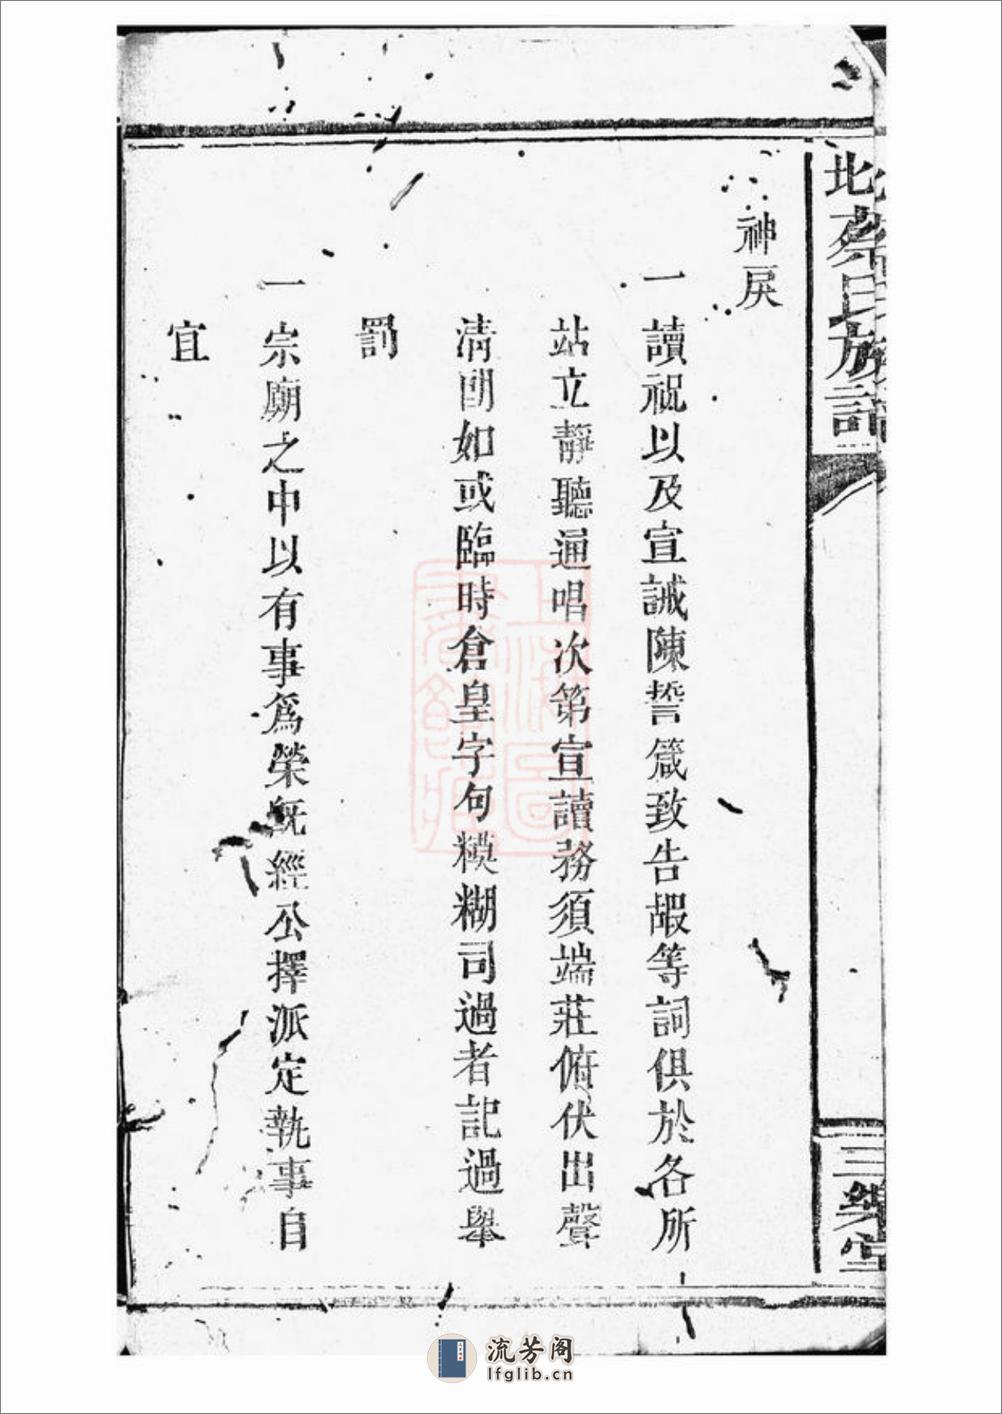 神戾
一讀祝以及宣誡陳誓箴致告嘏等詞俱於各所
站立靜聽通唱次第宣讀務須端莊俯伏出聲
清朗如或臨時倉皇字句糢糊司過者記過舉
罰
一宗廟之中以有事爲榮旣經公擇派定執事自
宜
氏族譜
三樂堂
流芳阁
lfglib.cn